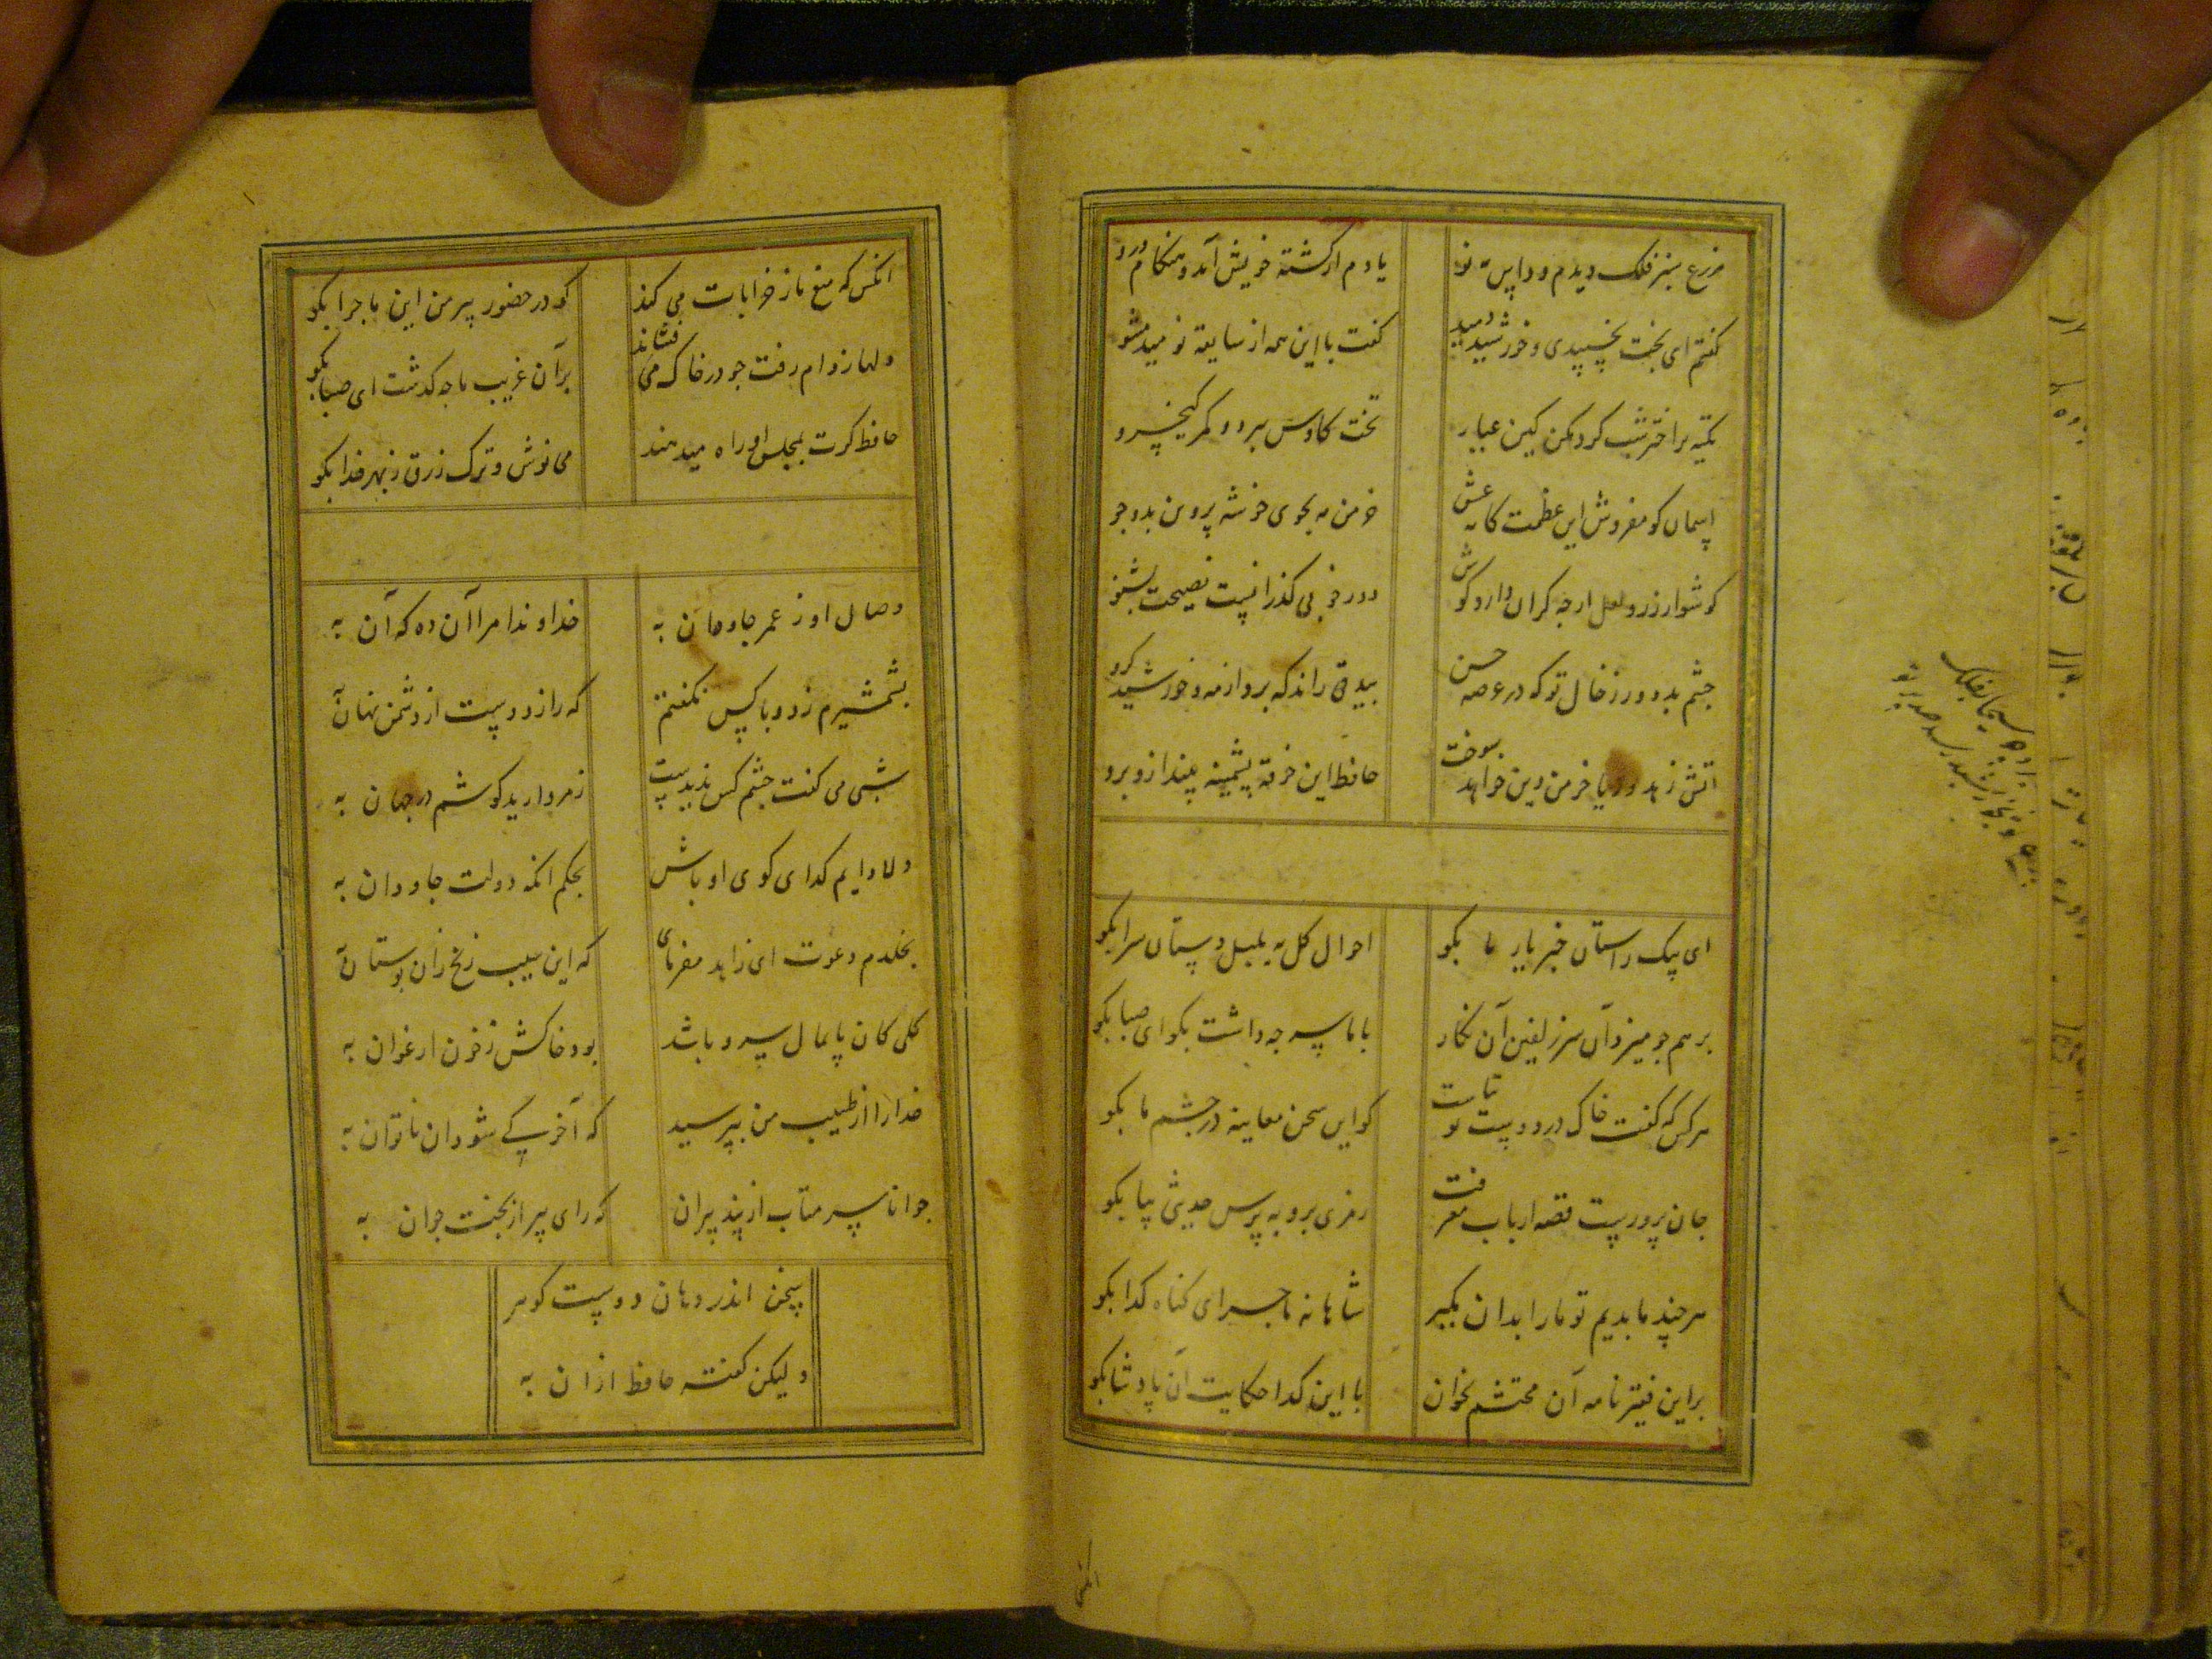 مزرع سبز فلک دیدم و داس مه نو یادم از کشته خویش آمد و هنکام درو
کفتم ای بخت بخسپیدی و خورشید دمید کفت با این همه از سابقه نومید مشو
تکیه بر اختر شب کرد مکن کین عیار تخت کاوس ببرد و کمر کیخسرو
اسمان کو مفروش این عظمت کاندر عشق خرمن مه بجوی خوشه پروین بدو جو
کوشوار زر و لعل ارچه کران دارد کوش دور خوبی کذرانیست نصیحت بشنو
چشم بد دور ز خال تو که در عرصه حسن بیدقی راند که برد از مه و خورشید کرو
اتش زهد و ریا خرمن دین خواهد سوخت حافظ این خرقه پشمینه بینداز و برو
ای پیک راستان خبر یار ما بکو احوال کل به بلبل دستان سرا بکو
برهم چو میزد آن سر زلفین آن نکار با ما سر چه داشت بکو ای صبا بکو
هر کس که کفت خاک در دوست توتیاست کو این سخن معاینه در چشم ما بکو
جان پرورست قصه ارباب معرفت رمزی برو بپرس حدیثی بیا بکو
هر چند ما بدیم تو ما را بدان مکیر شاهانه ماجرای کناه کدا بکو
بر این فقیر نامه آن محتشم بخوان با این کدا حکایت آن پادشا بکو
انکس
انکس که منع ما ز خرابات می کند کو در حضور پیر من این ماجرا بکو
دلها ز دام رفت چو در خاک می فشاند بر آن غریب ما چه کذشت ای صبا بکو
حافظ کرت بمجلس او راه میدهند می نوش و ترک زرق ز بهر خدا بکو
وصال او ز عمر جاودان به خداوندا مرا آن ده که آن به
بشمشیرم زد و با کس نکفتم که راز دوست از دشمن نهان به
شبی می کفت چشم کس ندیدست ز مروارید کوشم در جهان به
دلا دایم کدای کوی او باش بحکم انکه دولت جاودان به
بخلدم دعوت ای زاهد مفرمای که این سیب زنخ زان بوستان به
کلی کان پایمال سرو ما شد بود خاکش ز خون ارغوان به
خدا را از طبیب من بپرسید که آخر کی شود ان ناتوان به
جوانا سر متاب از پند پیران که رای پیر از بخت جوان به
سخن اندر دهان دوست کوهر
ولیکن کفته حافظ از ان به